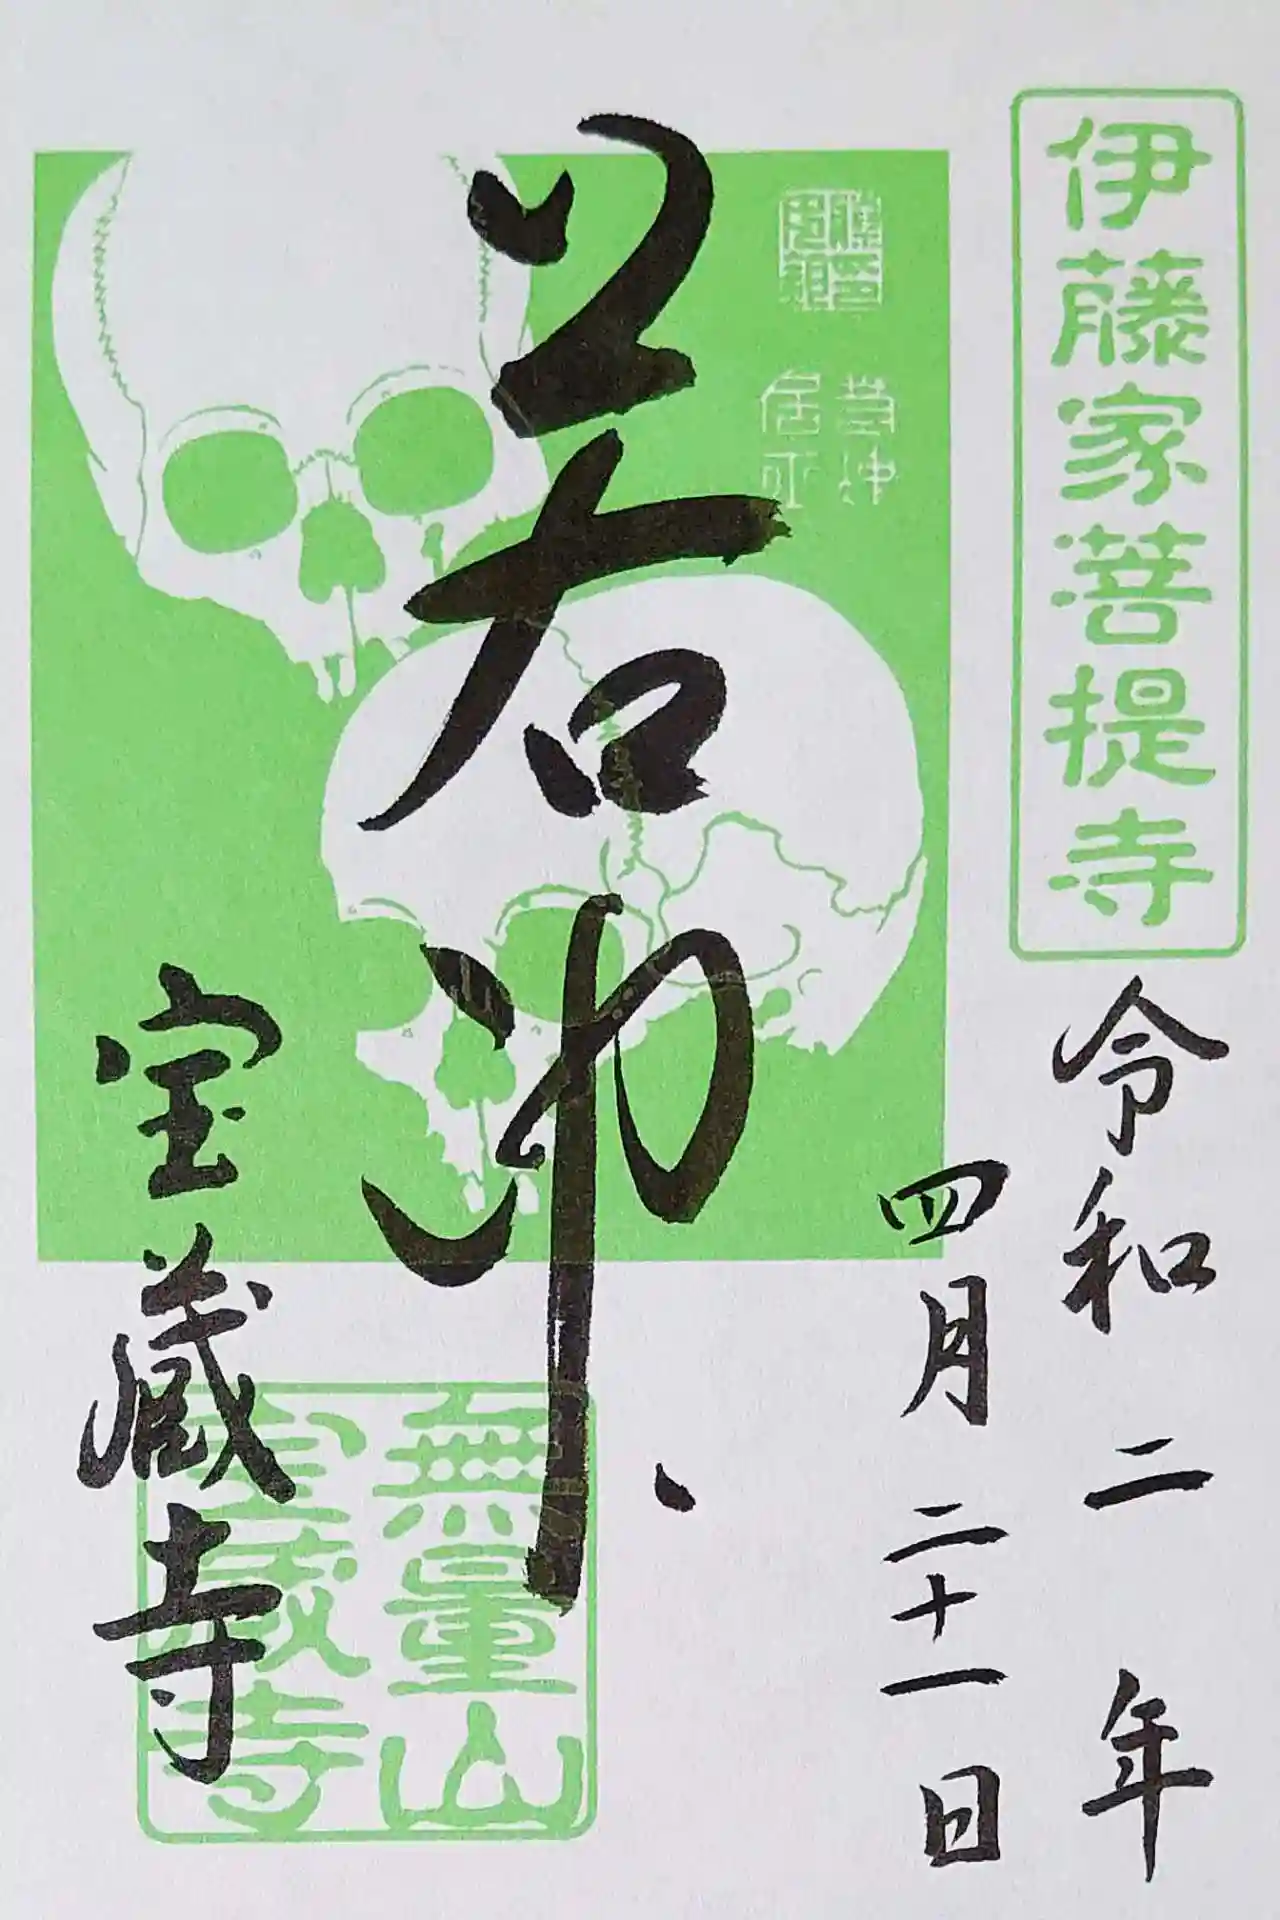 伊藤家菩提寺
令和二年
四月二十一日
若冲
若冲
居士
宝蔵寺
無量山
宝蔵寺